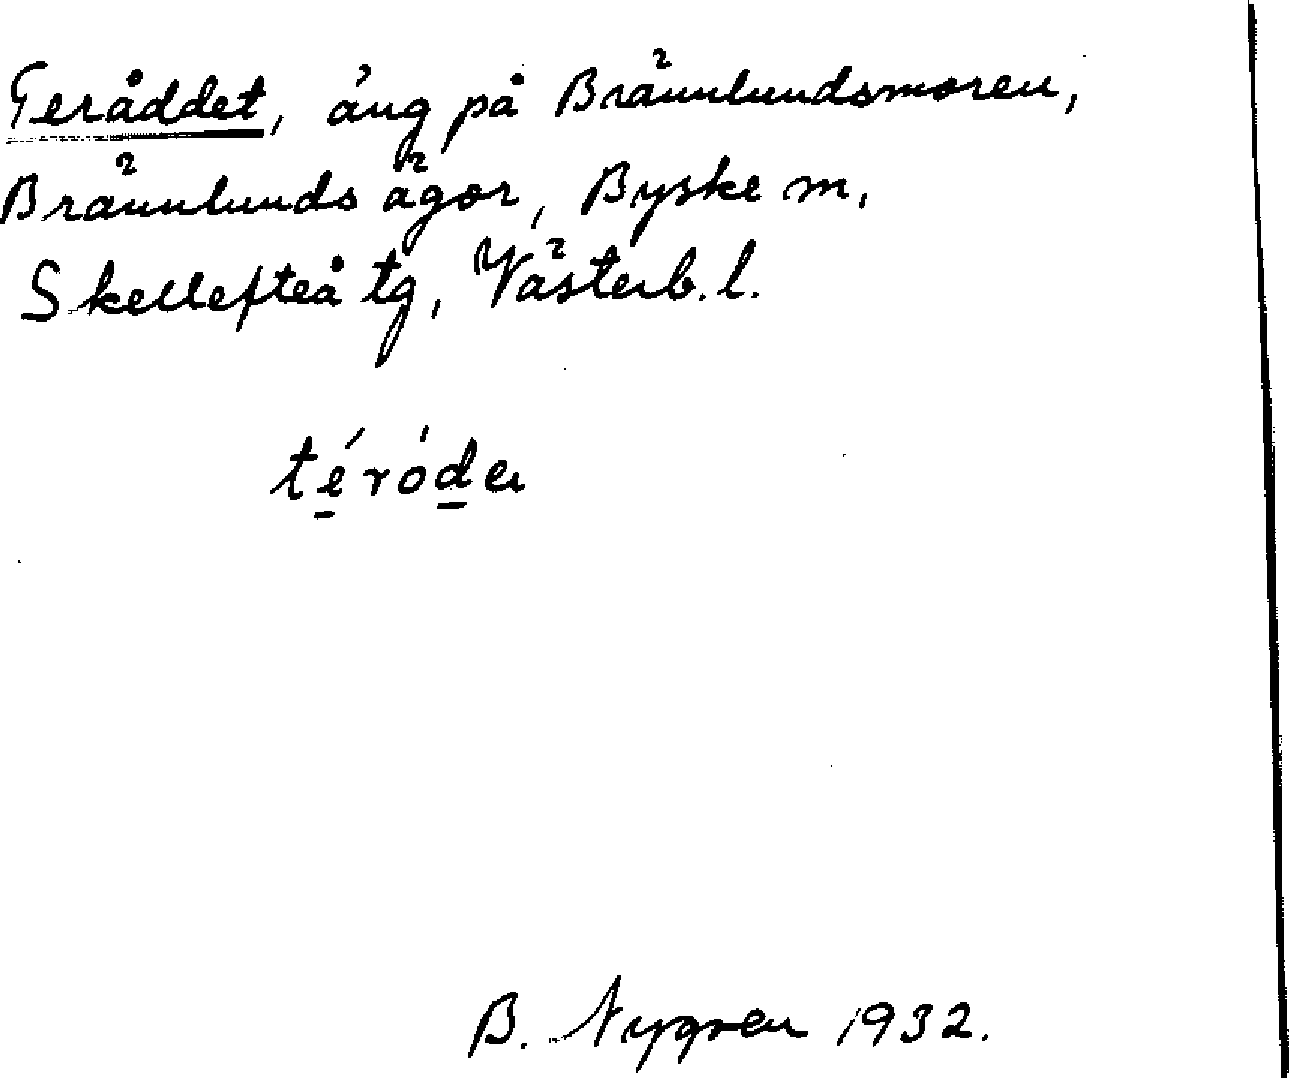 Teråddet, äng på Brännlundsmoren,
Brännlunds ägor, Byske sn.
Skellefteå tg, Västerb. l.
téróden
B. Nygren 1932.